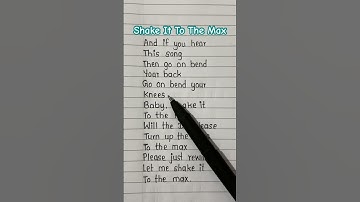 Shake It To The Max
And if you hear
This song
Then go on bend
Your back
Go on bend your
Knees
Baby, shake it
To the
Will the
Turn up the
To the max
Please just
Let me shake it
To the max.